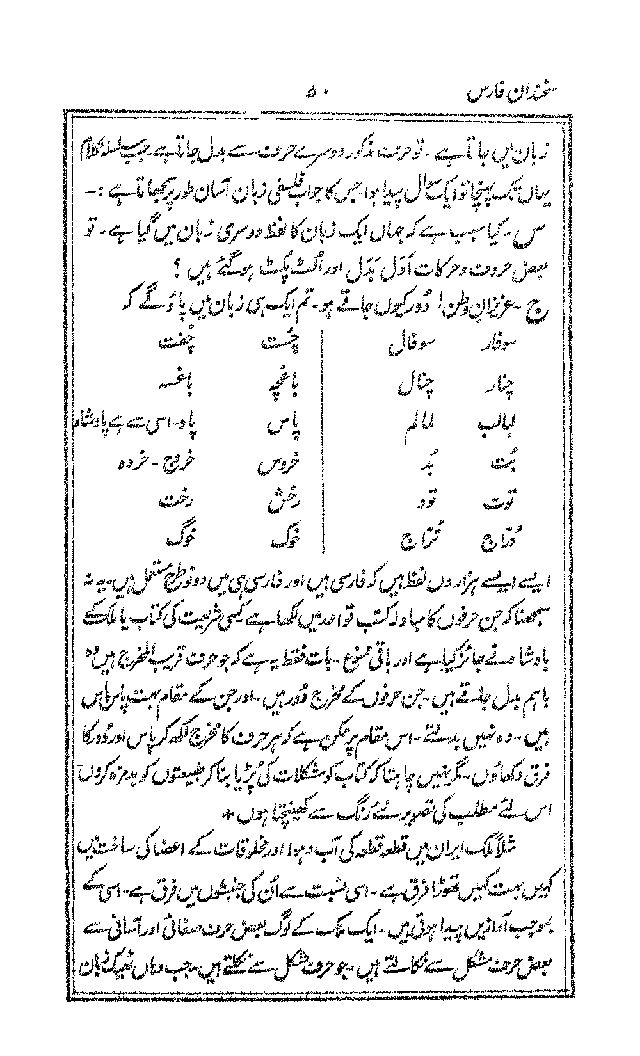 سخندان فارس ۵۰
زبان میں جاتا ہے۔ تو حرف مذکور دوسرے حرف سے بدل جاتا ہے جب سلسلہ کلام
یہاں تک پہنچا تو ایک سوال پیدا ہوا جس کا جواب فلسفی زبان آسان طور پر سمجھاتا ہے :۔
س۔ کیا سبب ہے کہ جہاں ایک زبان کا لفظ دوسری زبان میں گیا ہے۔ تو
بعض حروف و حرکات اَدَل بَدَل اور اُلٹ پُلٹ ہو گئے ہیں ؟
ج۔ عزیزانِ وطن! دُور کیوں جاتے ہو۔ تم ایک ہی زبان میں پاؤ گے کہ
سوفار سوفال چُست چُفت
چنار چنال باغچہ باغسہ
لبالب لمالم پاس پاہ۔ اسی سے ہے پادشاہ
بُت بُد خروس خروچ۔ خرده
توت تود رخش رخت
دُرّاج تُرّاج خوک خوگ
ایسے ایسے ہزاروں لفظ ہیں کہ فارسی ہیں اور فارسی ہی میں دونو طرح مستعمل ہیں۔ یہ نہ
سمجھنا کہ جن حرفوں کا مبادلہ کتب قواعد میں لکھا ہے کسی شریعت کی کتاب یا ملک کے
بادشاہ نے جائز کیا ہے اور باقی ممنوع۔ بات فقط یہ ہے کہ جو حرف قریب المخرج ہیں وہ
باہم بدل جاتے ہیں۔ جن حرفوں کے مخرج دُور ہیں۔ اور جن کے مقام بہت پاس پاس
ہیں۔ وہ نہیں بدلتے۔ اس مقام پر ممکن ہے کہ ہر حرف کا مخرج لکھ کر پاس اور دُور کا
فرق دکھاؤں۔ مگر نہیں چاہتا کہ کتاب کو مشکلات کی پُڑیا بنا کر طبیعتوں کو بدمزہ کروں
اس لئے مطلب کی تصویر نئے رنگ سے کھینچتا ہوں *
مثلاً ملک ایران میں قطعہ قطعہ کی آب و ہوا اور مخلوقات کے اعضا کی ساخت میں
کہیں بہت کہیں تھوڑا فرق ہے۔ اسی نسبت سے اُن کی جنبشوں میں فرق ہے۔ اسی کے
بموجب آوازیں پیدا ہوتی ہیں۔ ایک ملک کے لوگ بعض حرف صفائی اور آسانی سے
بعض حرف مشکل سے نکالتے ہیں۔ جو حرف مشکل سے نکلتے ہیں۔ جب وہاں ٹھیک زبان